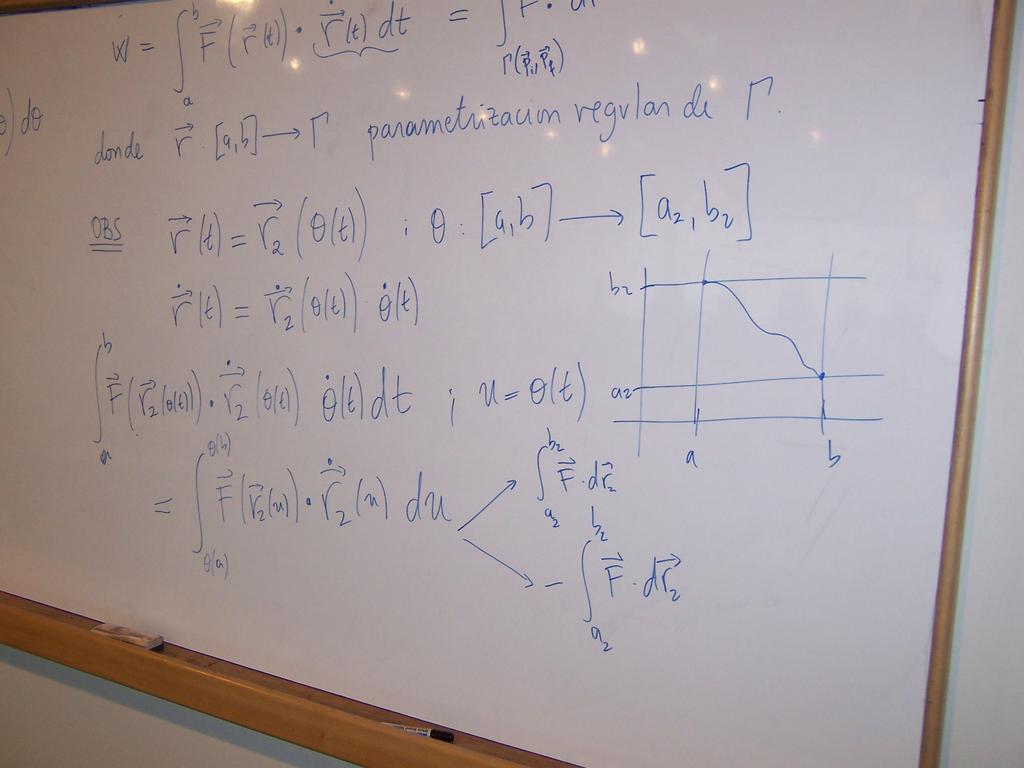 θ) dθ
W = ∫_a^b F⃗(r⃗(t)) · ṙ⃗(t) dt = ∫_{Γ(p⃗₁,p⃗₂)} F⃗ · dr⃗
donde r⃗ : [a,b] → Γ parametrizacion regular de Γ.
OBS r⃗(t) = r⃗₂(θ(t)) ; θ : [a,b] → [a₂, b₂]
ṙ⃗(t) = ṙ⃗₂(θ(t)) · θ̇(t)
b₂
a₂
a b
∫_a^b F⃗(r⃗₂(θ(t))) · ṙ⃗₂(θ(t)) θ̇(t) dt ; u = θ(t)
= ∫_{θ(a)}^{θ(b)} F⃗(r⃗₂(u)) · ṙ⃗₂(u) du
∫_{a₂}^{b₂} F⃗ · dr⃗₂
− ∫_{a₂}^{b₂} F⃗ · dr⃗₂